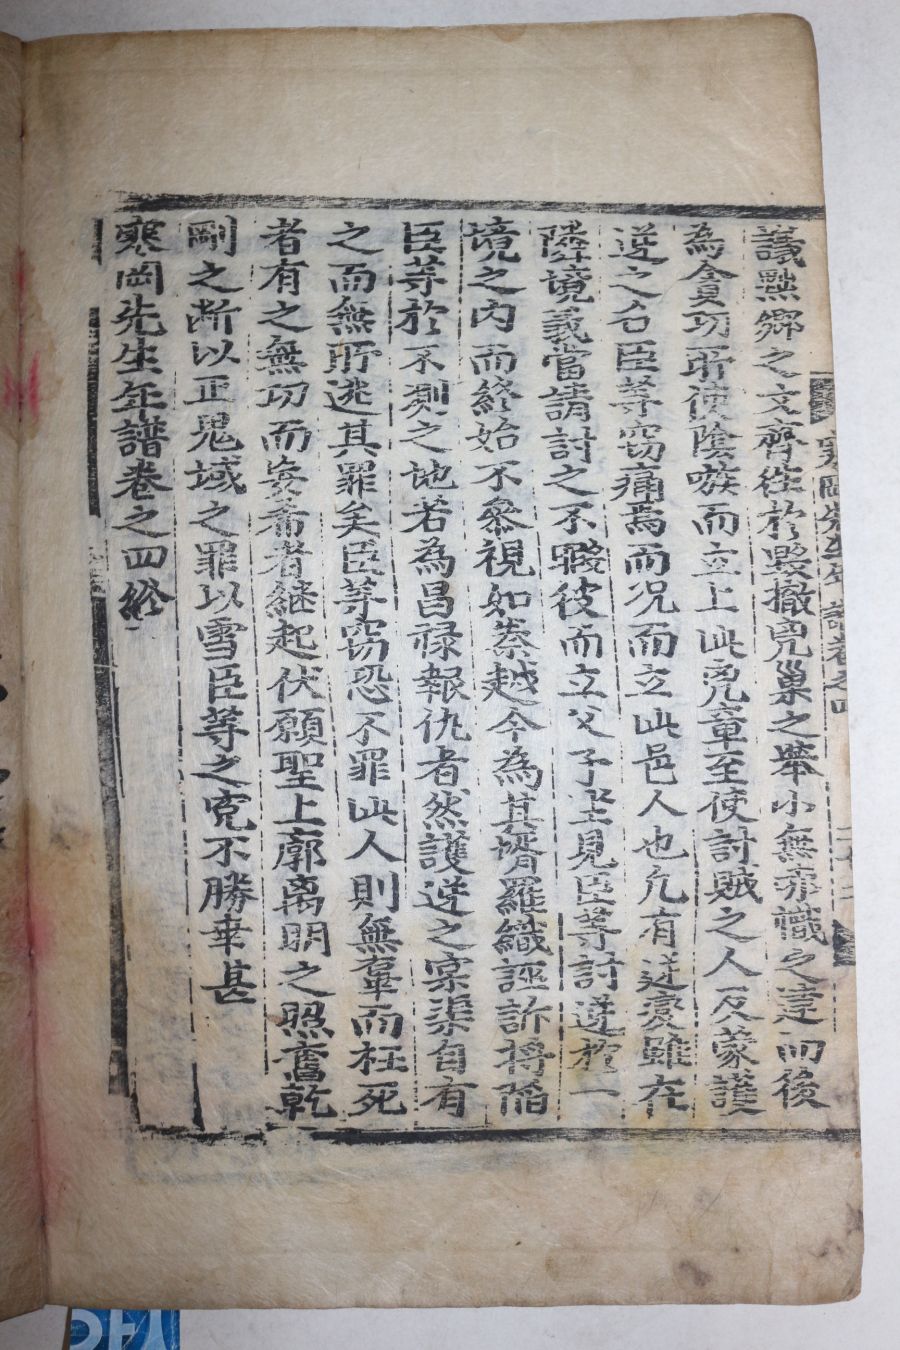 寒岡先生年譜卷之四
議黜鄉之文齊徃於毁撤兇巢之擧小無帝憾之違而後
為貪功所使陰嗾而立上此兇章至使討賊之人反蒙護
逆之名臣等竊痛焉而况而立此邑人也凢有逆變雖在
隣境義當請討之不暇彼而立父子坐見臣等討逆於一
境之内而終始不叅視如秦越今為其壻羅織誣訴將陷
臣等於不測之地若為昌禄報仇者然護逆之宗渠自有
之而無所逃其罪矣臣等竊恐不罪此人則無辜而枉死
者有之無功而妄希者継起伏願聖上廓离明之照奮乾
剛之斷以正鬼域之罪以雪臣等之寃不勝幸甚
寒岡先生年譜卷之四終